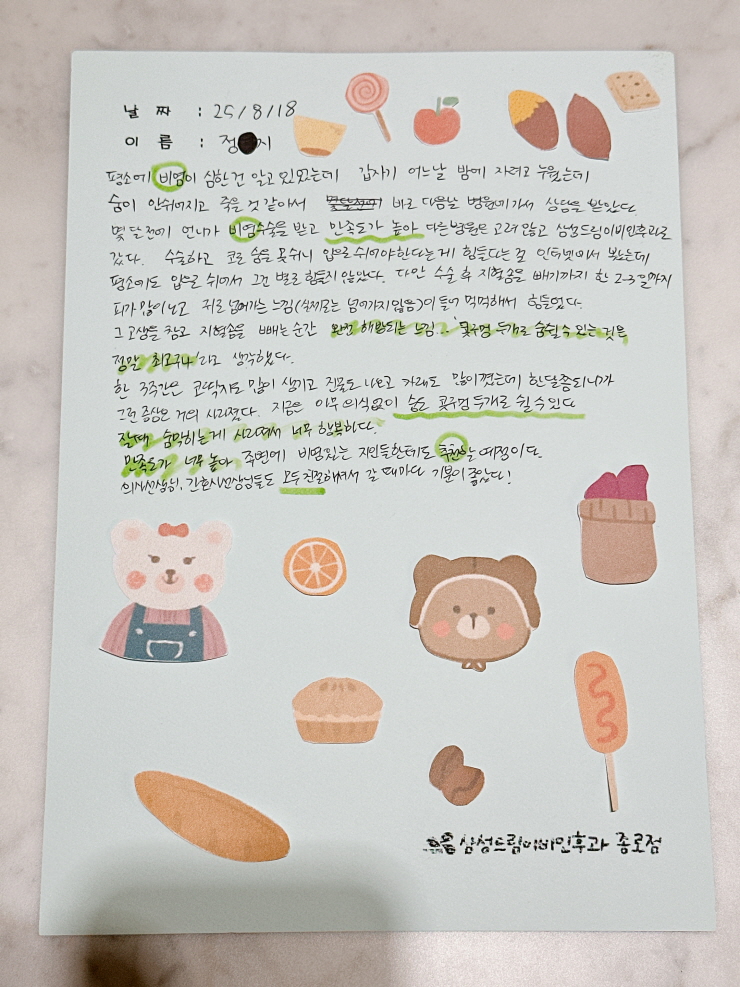 날 짜 : 25/8/18
이 름 : 정 지
평소에 비염이 심한건 알고 있었는데 갑자기 어느날 밤에 자려고 누웠는데
숨이 안쉬어지고 죽을 것 같아서 바로 다음날 병원에가서 상담을 받았다.
몇 달전에 언니가 비염수술을 받고 만족도가 높아 다른병원은 고려 않고 삼성드림이비인후과로
갔다. 수술하고 코로 숨을 못쉬니 입으로 쉬어야한다는게 힘들다는 걸 인터넷에서 봤는데
평소에도 입으로 쉬어서 그건 별로 힘들지 않았다. 다만 수술 후 지혈솜을 빼기까지 한 2-3일까지
피가 많이 나고 뒤로 넘어가는 느낌(실제로는 넘어가지않음)이 들어 먹먹해서 힘들었다.
그 고생을 참고 지혈솜을 빼는 순간 완전 해방되는 느낌... '콧구멍 두개로 숨쉴 수 있는 것은
정말 최고구나'라고 생각했다.
한 3주간은 코딱지도 많이 생기고 진물도 나오고 가래도 많이꼈는데 한달쯤되니까
그런 증상은 거의 사라졌다. 지금은 아무 의식없이 숨도 콧구멍 두개로 쉴 수 있다
잘때 숨막히는게 사라져서 너무 행복하다.
만족도가 너무 높아 주변에 비염있는 지인들한테도 추천할 예정이다.
의사선생님, 간호사선생님들도 모두 친절해서 갈 때마다 기분이 좋았다!
삼성드림이비인후과 종로점